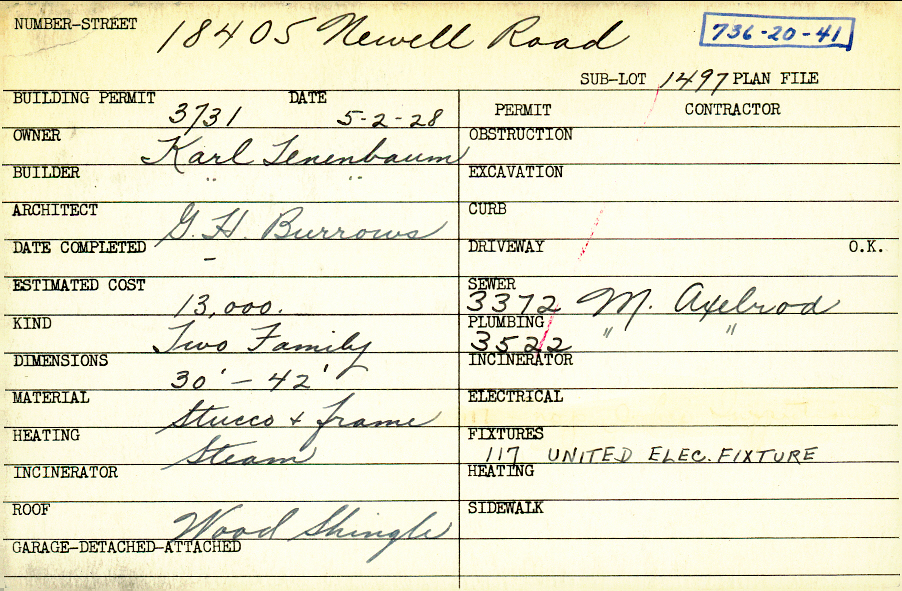 NUMBER-STREET 18405 Newell Road 736-20-41
SUB-LOT 1497 PLAN FILE
BUILDING PERMIT 3731 DATE 5-2-28
OWNER Karl Tenenbaum
BUILDER " "
ARCHITECT G. H. Burrows
DATE COMPLETED -
ESTIMATED COST 13,000.
KIND Two Family
DIMENSIONS 30' - 42'
MATERIAL Stucco + frame
HEATING Steam
INCINERATOR
ROOF Wood Shingle
GARAGE-DETACHED-ATTACHED
PERMIT CONTRACTOR
OBSTRUCTION
EXCAVATION
CURB
DRIVEWAY O.K.
SEWER 3372 M. Axelrod
PLUMBING 3522 " "
INCINERATOR
ELECTRICAL
FIXTURES 117 UNITED ELEC. FIXTURE
HEATING
SIDEWALK